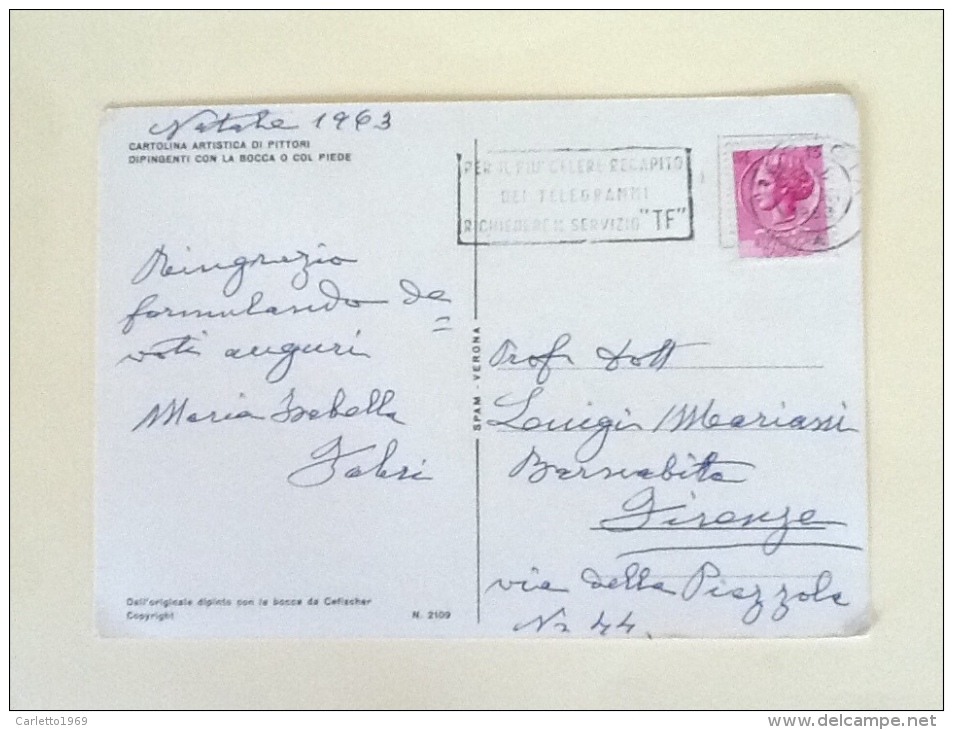 Natale 1963
CARTOLINA ARTISTICA DI PITTORI
DIPINGENTI CON LA BOCCA O COL PIEDE
PER IL PIU' CELERE RECAPITO
DEI TELEGRAMMI
RICHIEDERE IL SERVIZIO "TF"
15
Ringrazio
formulando de
voti auguri
Maria Isabella
Fabri
SPAM - VERONA
Prof Dott
Luigi Mariani
Barnabita
Firenze
via della Piazzola
Nr 44
Dall'originale dipinto con la bocca da Cefischer
Copyright N. 2109
Carletto1969
www.delcampe.net